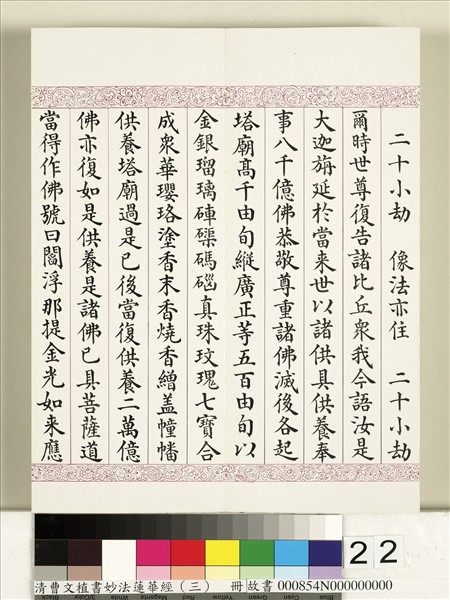 二十小劫　像法亦住　二十小劫
爾時世尊復告諸比丘眾我今語汝是
大迦旃延於當来世以諸供具供養奉
事八千億佛恭敬尊重諸佛滅後各起
塔廟高千由旬縱廣正等五百由旬以
金銀瑠璃硨磲碼碯真珠玫瑰七寶合
成衆華瓔珞塗香末香燒香繒盖幢幡
供養塔廟過是已後當復供養二萬億
佛亦復如是供養是諸佛已具菩薩道
當得作佛號曰閻浮那提金光如来應
22
清曹文植書妙法蓮華經（三）　冊 故書 000854N000000000
Blue Cyan Green Yellow Red Magenta White 3/Color Black